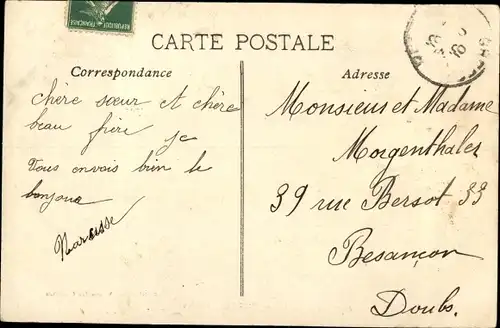 REPUBLIQUE FRANCAISE
CARTE POSTALE
Correspondance
chère sœur et chère
beau frère je
vous envois bien le
bonjour
Narcisse
Adresse
Monsieur et Madame
Morgenthaler
39 rue Bersot 33
Besançon
Doubs.